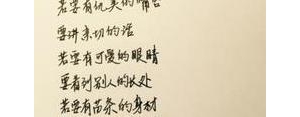 若要有优美的嘴唇
要讲亲切的话
若要有可爱的眼睛
要看到别人的长处
若要有苗条的身材